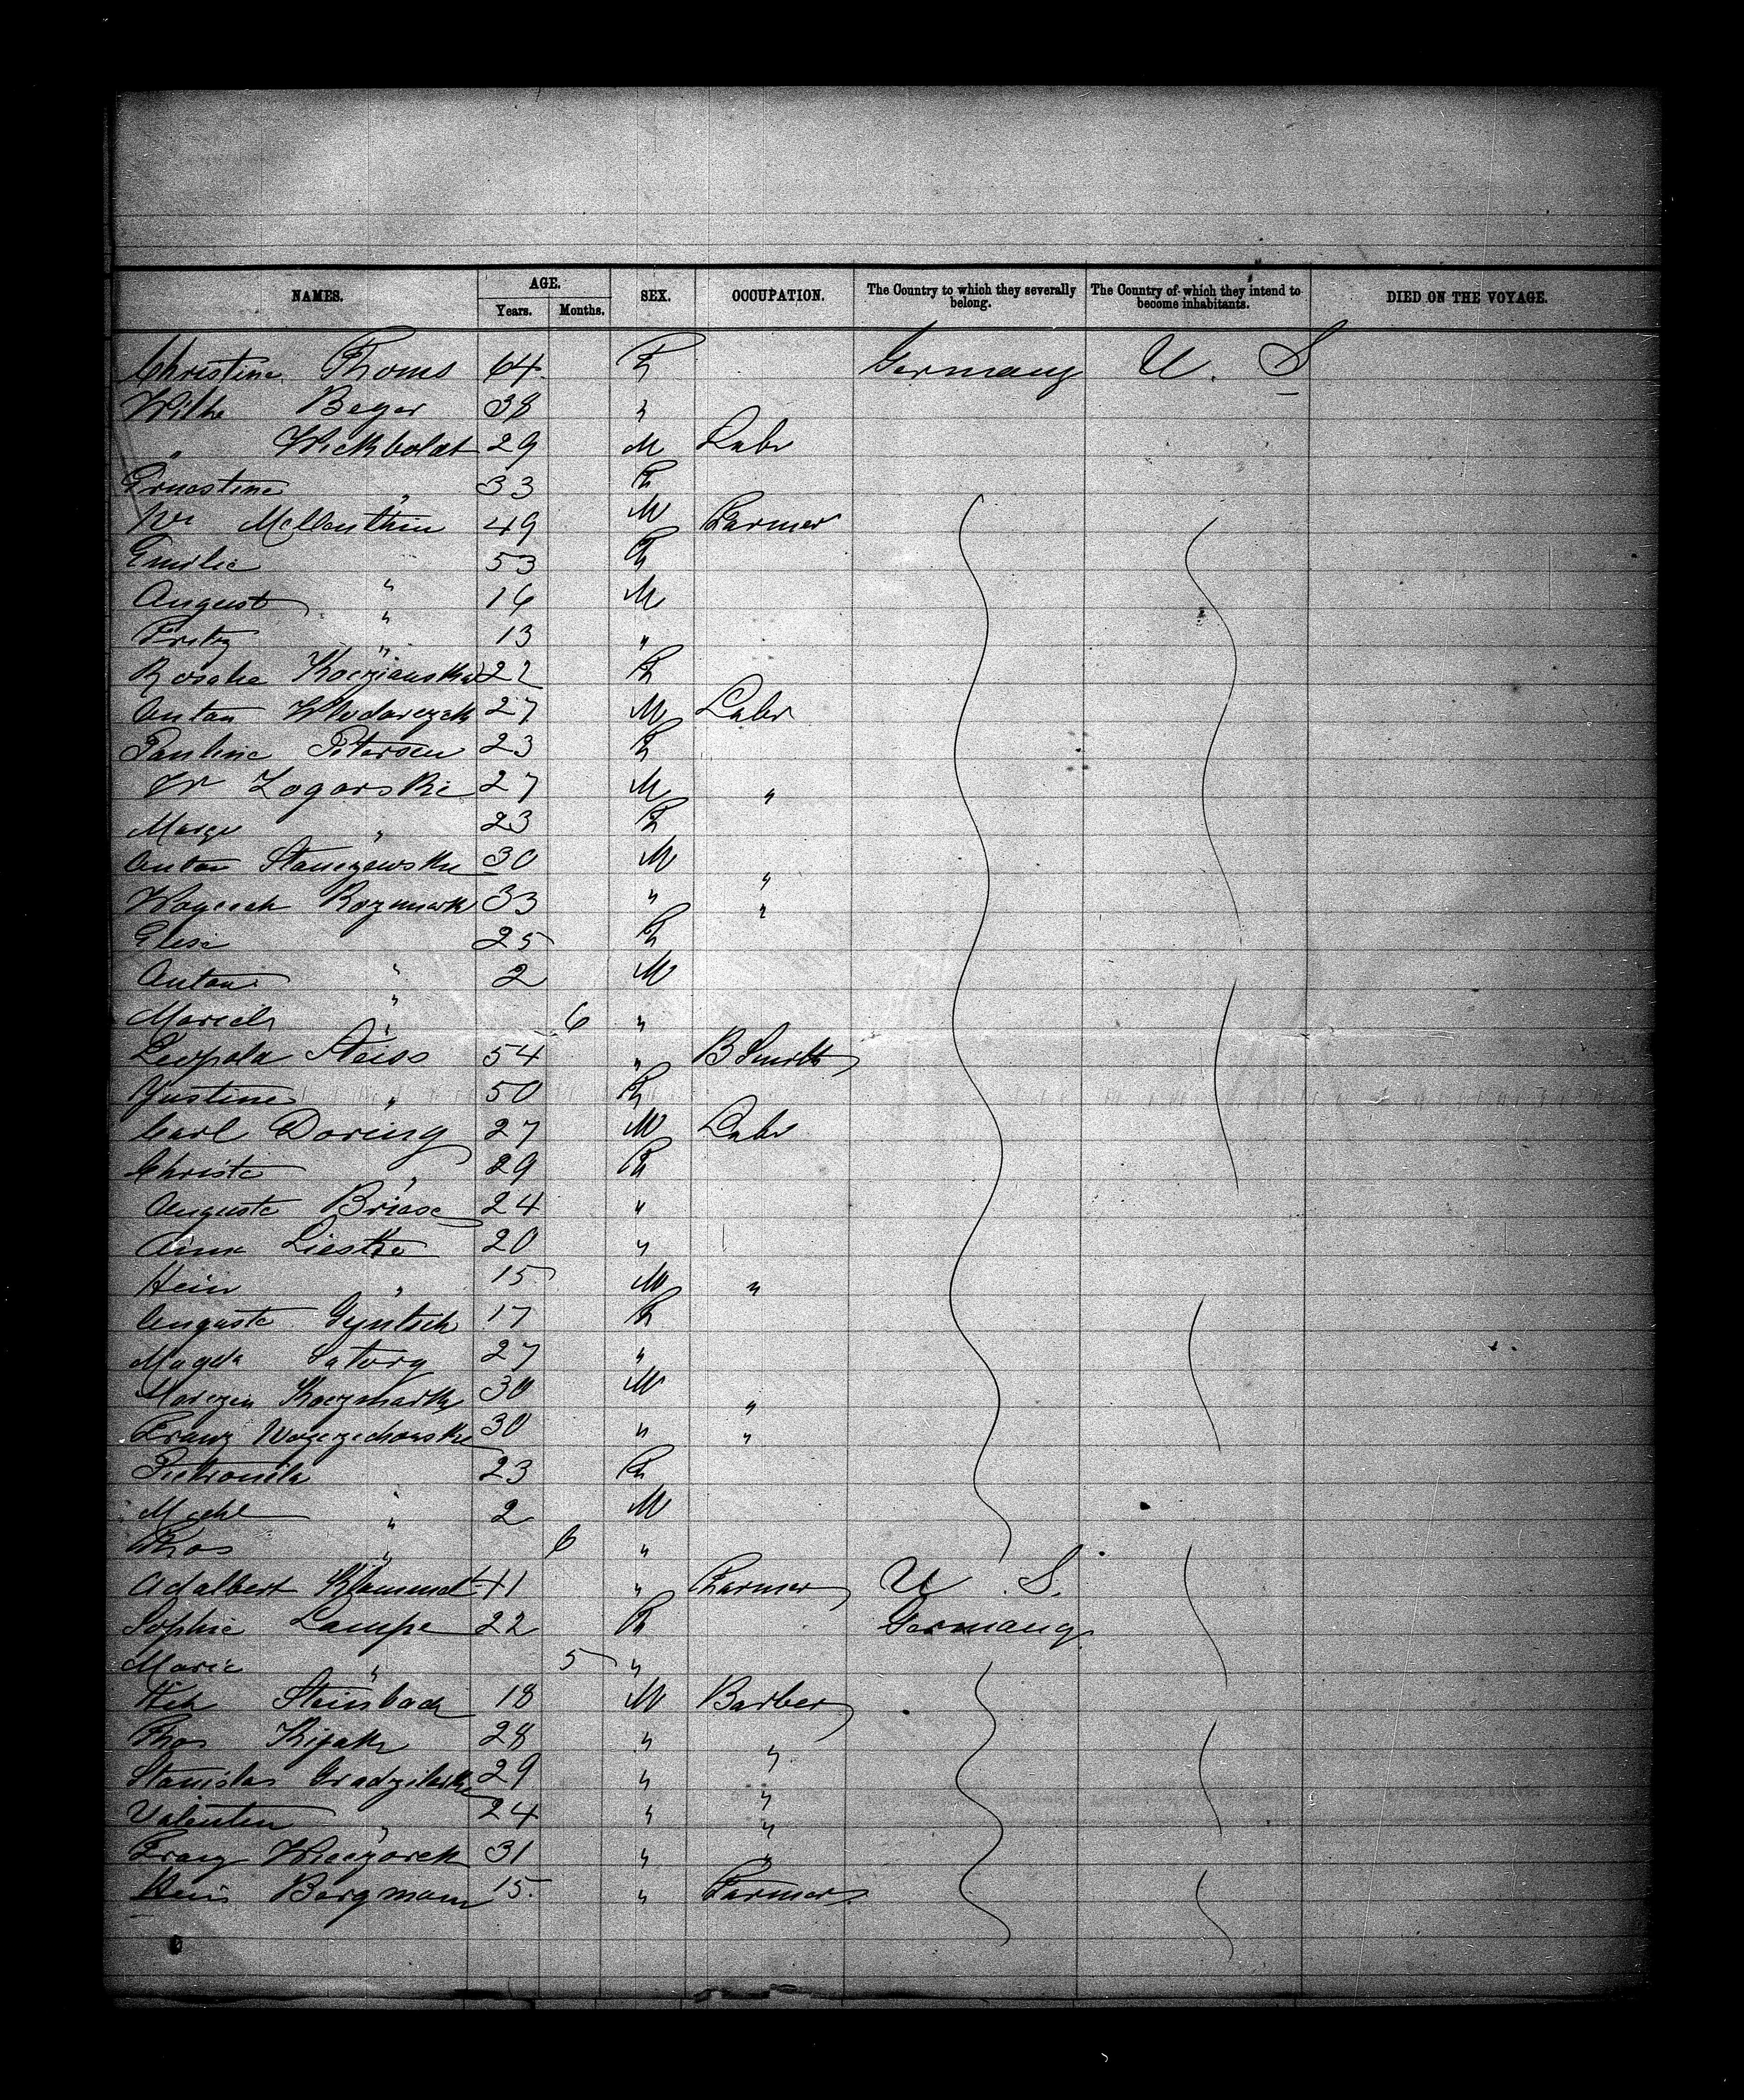 NAMES. AGE. SEX. OCCUPATION. The Country to which they severally belong. The Country of which they intend to become inhabitants. DIED ON THE VOYAGE.
Years. Months.
Christine Thoms 64 F Germany U. S
Wilhe Beyer 38 "
" Wickboldt 29 M Labr
Ernestine " 33 F
Wm Mellenthin 49 M Farmer
Emilie " 53 F
August " 16 M
Fritz " 13 "
Rosalie 22 F
Anton Wlodarczak 27 M Labr
Pauline Petersen 23 F
W Zogorski 27 M "
Marge " 23 F
Anton Stanczewski 30 M "
33 " "
Elise " 25 F
Anton " 2 M
" 6 "
Leopold Steiss 54 " B Smith
Justine " 50 F
Carl Doring 27 M Labr
Christe " 29 F
Auguste Briese 24 "
Anna Lieske 20 "
Hein " 15 M "
Auguste Gyntsch 17 F
Magda 27 "
Marczin Kaczmarek 30 M "
Franz Woyzechowski 30 " "
Pietronila " 23 F
Michl " 2 M
Thos " 6 "
Adalbert 41 " Farmer U. S.
Sophie Lampe 22 F Germany
Marie " 5 "
Steinbach 18 M Barber
Thos Kijak 28 " "
Stanislas 29 " "
Valentin " 24 " "
Franz Wieczorek 31 " "
Hein Bergmann 15 " Farmer